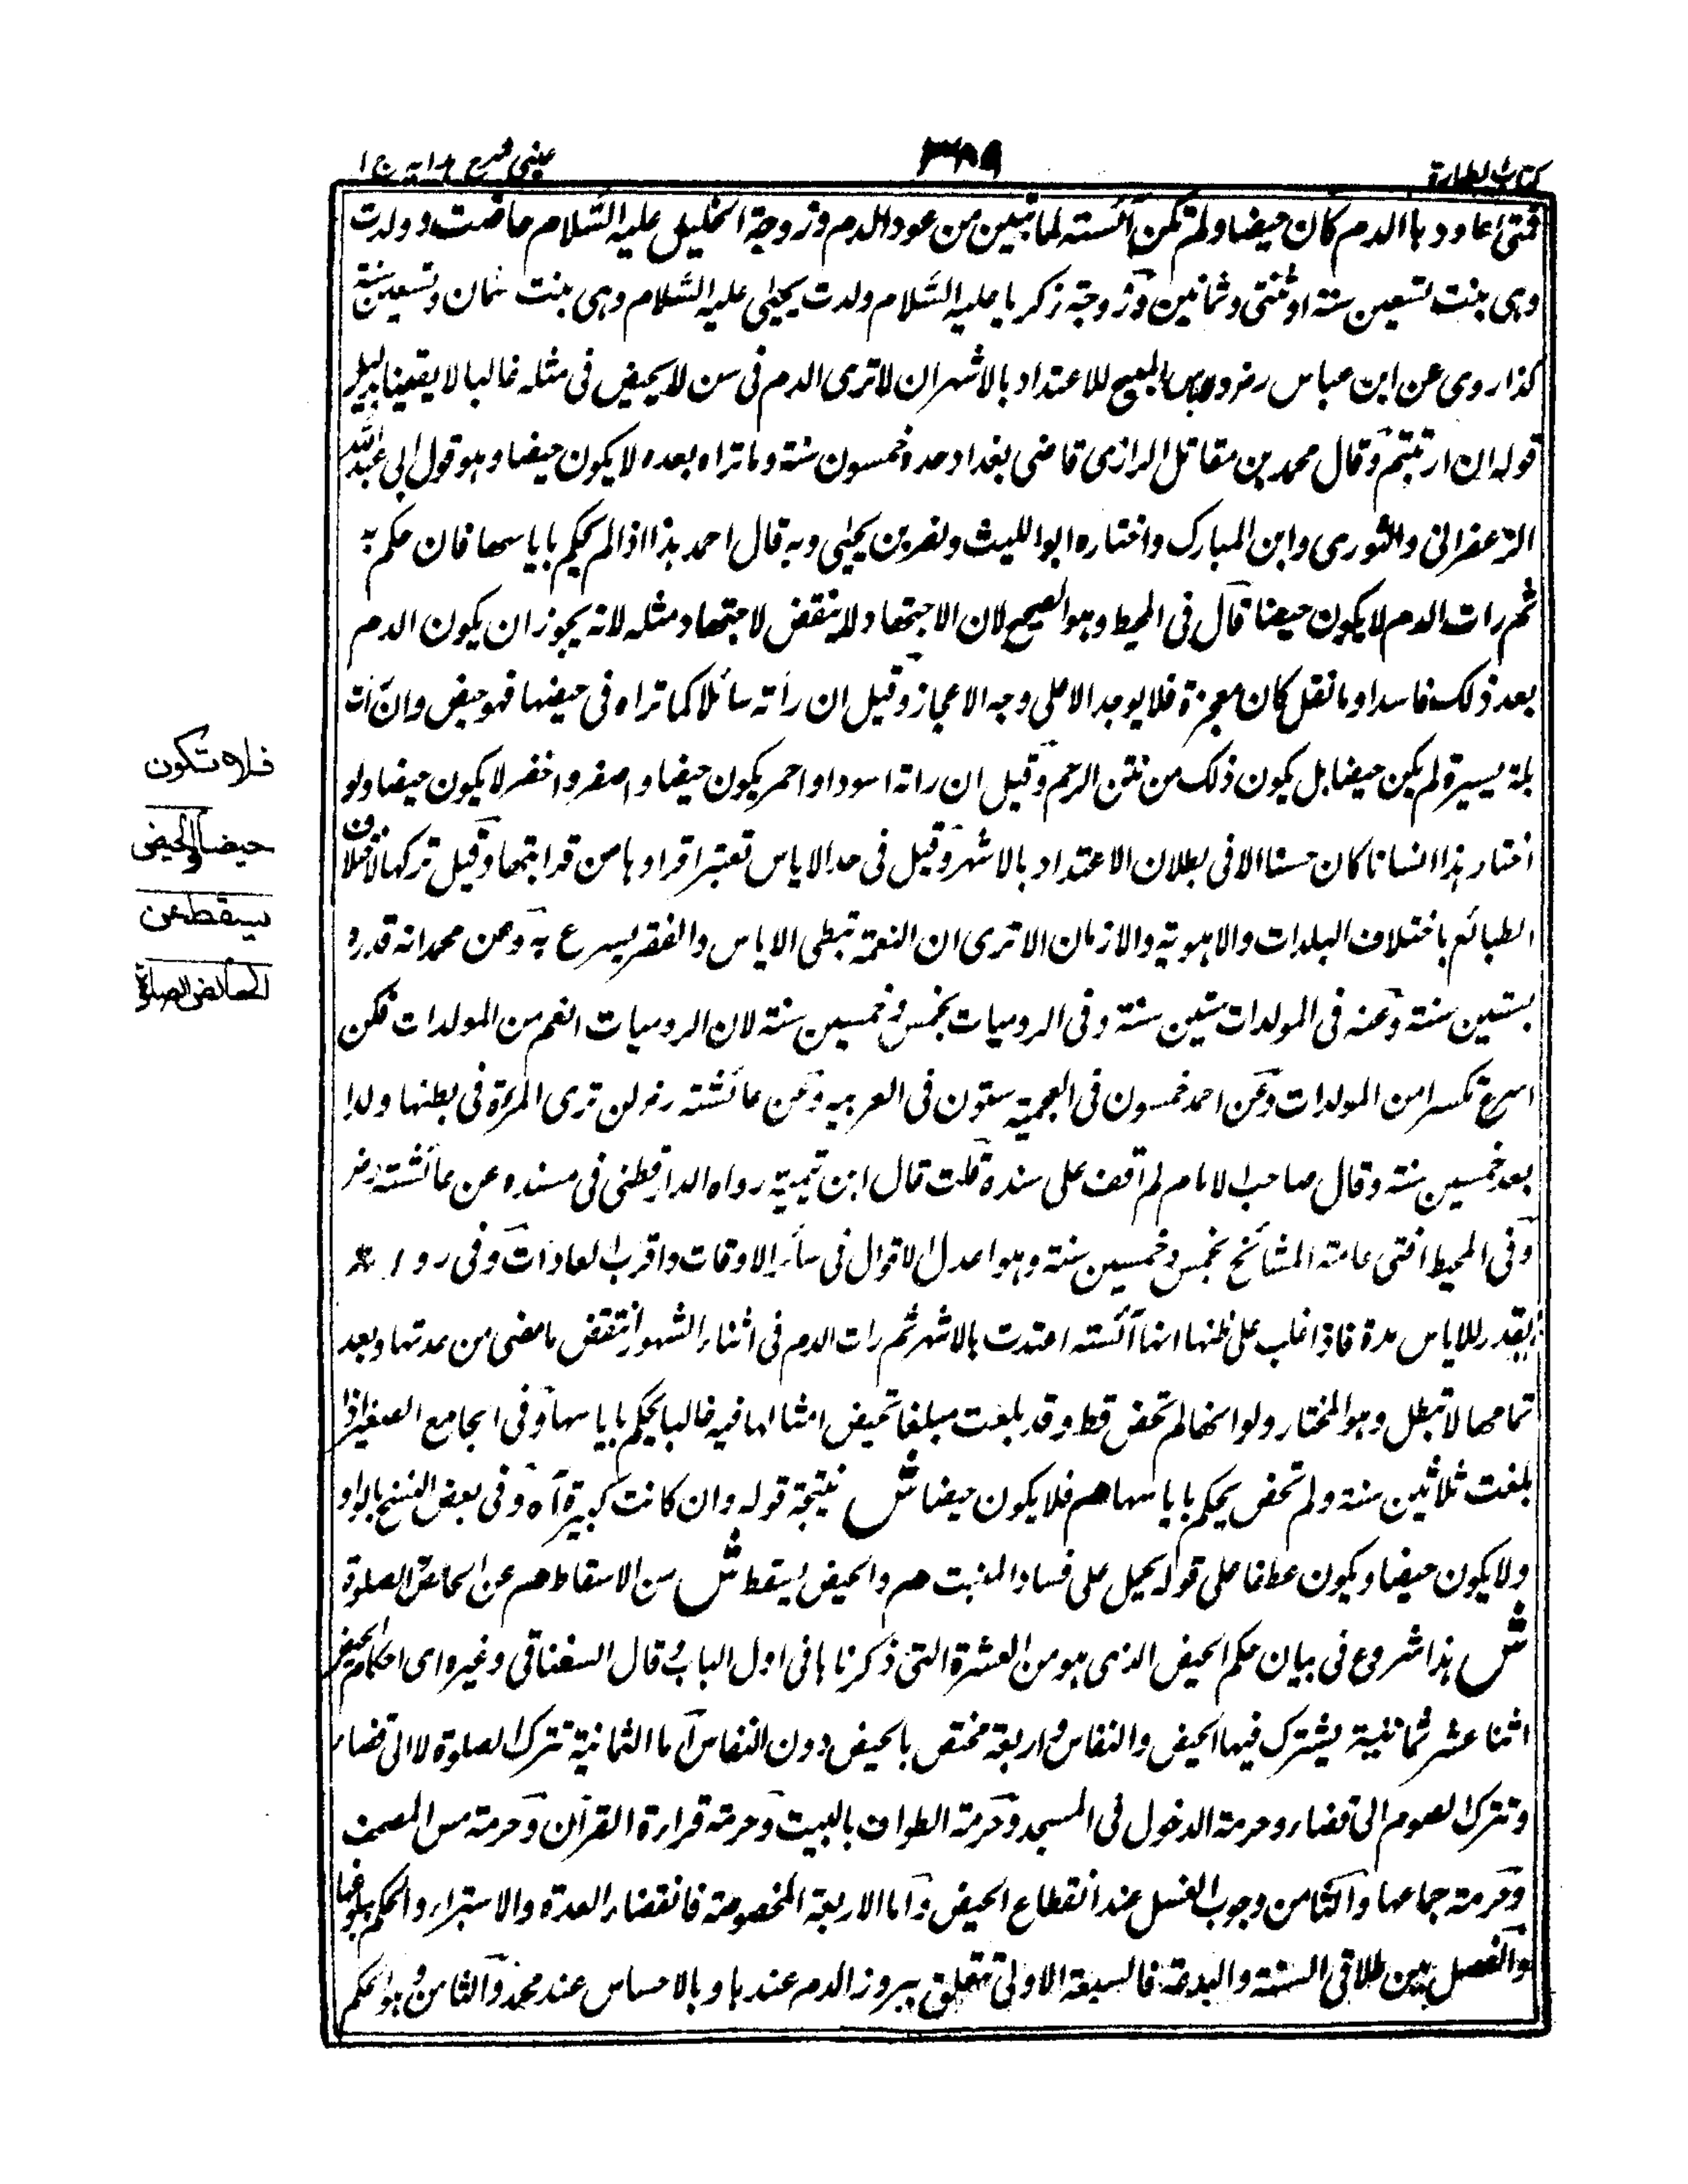 كتاب الطهارة
٣٨٩
عينى شرح هدايه ج ١
فمتى اعاود ها الدم كان حيضا ولم تكن آئسته لما تبين من عود الدم وزوجة الخليل عليه السلام حاضت وولدت
وهى بنت تسعين سنة او ثنتى وثمانين وزوجة زكريا عليه السلام ولدت يحيى عليه السلام وهى بنت ثمان وتسعين سنة
كذا روى عن ابن عباس رضـ المبيح للاعتداد بالاشهر ان لا ترى الدم فى سن لا يحيض فى مثله غالبا لا يقينا بدليل
قوله ان ارتبتم وقال محمد بن مقاتل الرازى قاضى بغداد حده خمسون سنة وما تراه بعده لا يكون حيضا وهو قول ابى عبد الله
الزعفرانى والثورى وابن المبارك واختاره ابو الليث ونصر بن يحيى وبه قال احمد هذا اذا لم يحكم باياسها فان حكم به
ثم رات الدم لا يكون حيضا قال فى المحيط وهو الصحيح لان الاجتهاد لا ينقض لاجتهاد مثله لانه يجوز ان يكون الدم
بعد ذلك فاسدا وما نقل كان معجزة فلا يوجد الا على وجه الاعجاز وقيل ان رأته سائلا كما تراه فى حيضها فهو حيض وان رأت
بلة يسيرة لم يكن حيضا بل يكون ذلك من نتن الرحم وقيل ان راته اسود او احمر يكون حيضا واصفر واخضر لا يكون حيضا ولو
اختار هذا انسانا كان حسنا الا فى بطلان الاعتداد بالاشهر وقيل فى حد الاياس تعتبر اقراوها من قرابتها وقيل تركها لاختلاف
الطبائع باختلاف البلدات والاهوية والازمان الا ترى ان النعمة تبطى الاياس والفقر يسرع به وعن محمد انه قدره
بستين سنة وعنه فى المولدات ستين سنة وفى الروميات بخمس وخمسين سنة لان الروميات انعم من المولدات فكن
اسرع تكسرا من المولدات وعن احمد خمسون فى العجمية ستون فى العربيه وعن عائشته رضـ لن ترى المرءة فى بطنها ولدا
بعد خمسين سنة وقال صاحب الامام لم اقف على سنده قلت قال ابن تيمية رواه الدارقطنى فى مسنده عن عائشته رضـ
وفى المحيط افتى عامة المشائخ بخمس وخمسين سنة وهو اعدل الاقوال فى سائر الاوقات واقرب العادات وفى
يقدر للاياس مدة فاذا غلب على ظنها انها آئسته اعتدت بالاشهر ثم رات الدم فى اثناء الشهور انتقض ما مضى من عدتها وبعد
تمامها لا تبطل وهو المختار ولو انها لم تحض قط وقد بلغت مبلغا تحيض امثالها فيه غالبا يحكم باياسها وفى الجامع الصغير اذا
بلغت ثلاثين سنة ولم تحض يحكم باياسها هم فلا يكون حيضا ش نتيجة قوله وان كانت كبيرة آه وفى بعض النسخ بالواو
ولا يكون حيضا ويكون عطفا على قوله يحيل على فساد المنبت هم والحيض يسقط ش من الاسقاط هم عن الحائض الصلوة
ش هذا شروع فى بيان حكم الحيض الذى هو من العشرة التى ذكرناها فى اول الباب قال السغناقى وغيره اى احكام الحيض
اثنا عشر ثمانية يشترك فيها الحيض والنفاس واربعة مختص بالحيض دون النفاس اما الثمانية تترك الصلوة لا الى قضاء
وتترك الصوم الى قضاء وحرمة الدخول فى المسجد وحرمة الطواف بالبيت وحرمة قراءة القرآن وحرمة مس المصحف
وحرمة جماعها والثامن وجوب الغسل عند انقطاع الحيض واما الاربعة المخصوصة فانقضاء العدة والاستبراء والحكم ببلوغها
والفصل بين طلاقى السنة والبدعة فالسبعة الاولى تتعلق ببروز الدم عندها وبالاحساس عند محمد والثامن وهو الحكم
فلا تكون
حيضا والحيض
يسقط عن
الحائض الصلاة